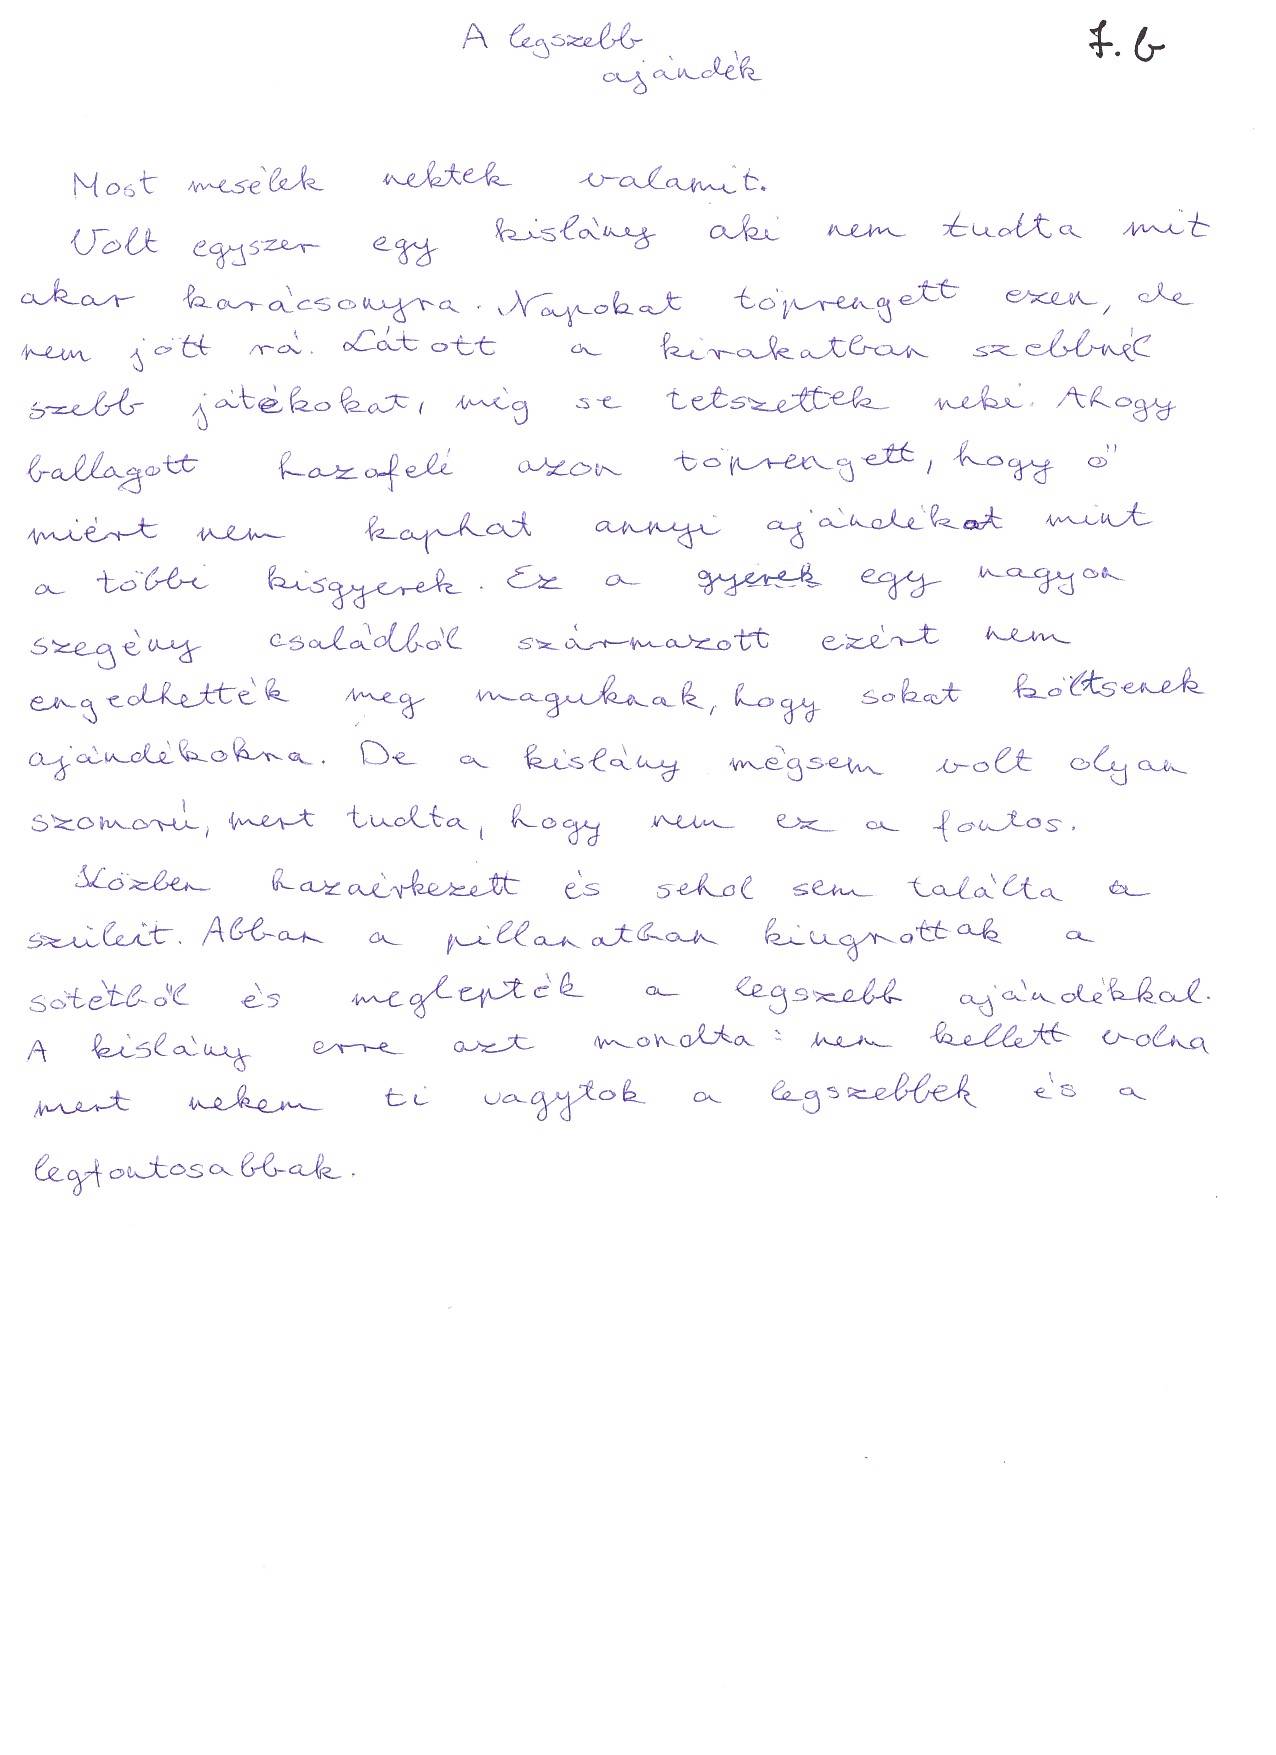 A legszebb
ajándék
7. b
Most mesélek nektek valamit.
Volt egyszer egy kislány aki nem tudta mit
akar karácsonyra. Napokat töprengett ezen, de
nem jött rá. Látott a kirakatban szebbnél
szebb játékokat, még se tetszettek neki. Ahogy
ballagott hazafelé azon töprengett, hogy ő
miért nem kaphat annyi ajándékot mint
a többi kisgyerek. Ez a gyerek egy nagyon
szegény családból származott ezért nem
engedhették meg maguknak, hogy sokat költsenek
ajándékokra. De a kislány mégsem volt olyan
szomorú, mert tudta, hogy nem ez a fontos.
Közben hazaérkezett és sehol sem találta a
szüleit. Abban a pillanatban kiugrottak a
sötétből és meglepték a legszebb ajándékkal.
A kislány erre azt mondta: nem kellett volna
mert nekem ti vagytok a legszebbek és a
legfontosabbak.